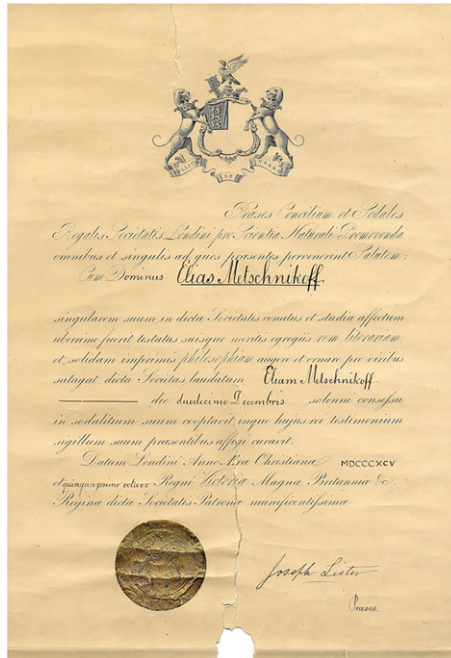 NULLIUS IN VERBA
Præses Concilium et Sodales
Regalis Societatis Londini pro Scientia Naturali Promovenda
omnibus et singulis ad quos præsentes pervenerint Salutem:
Cum Dominus Elias Metschnikoff
singularem suum in dictæ Societatis conatus et studia affectum
uberrime fuerit testatus suisque meritis egregiis rem literariam
et solidam imprimis philosophiam augere et ornare pro viribus
satagat dicta Societas laudatum Eliam Metschnikoff
die duodecimo Decembris solemni consessu
in sodalitium suum cooptavit inque hujus rei testimonium
sigillum suum præsentibus affigi curavit.
Datum Londini Anno Æræ Christianæ MDCCCXCV
et quinquagesimo octavo Regni Victoriæ Magnæ Britanniæ &c.
Reginæ dictæ Societatis Patronæ munificentissimæ
Joseph Lister
Præses.